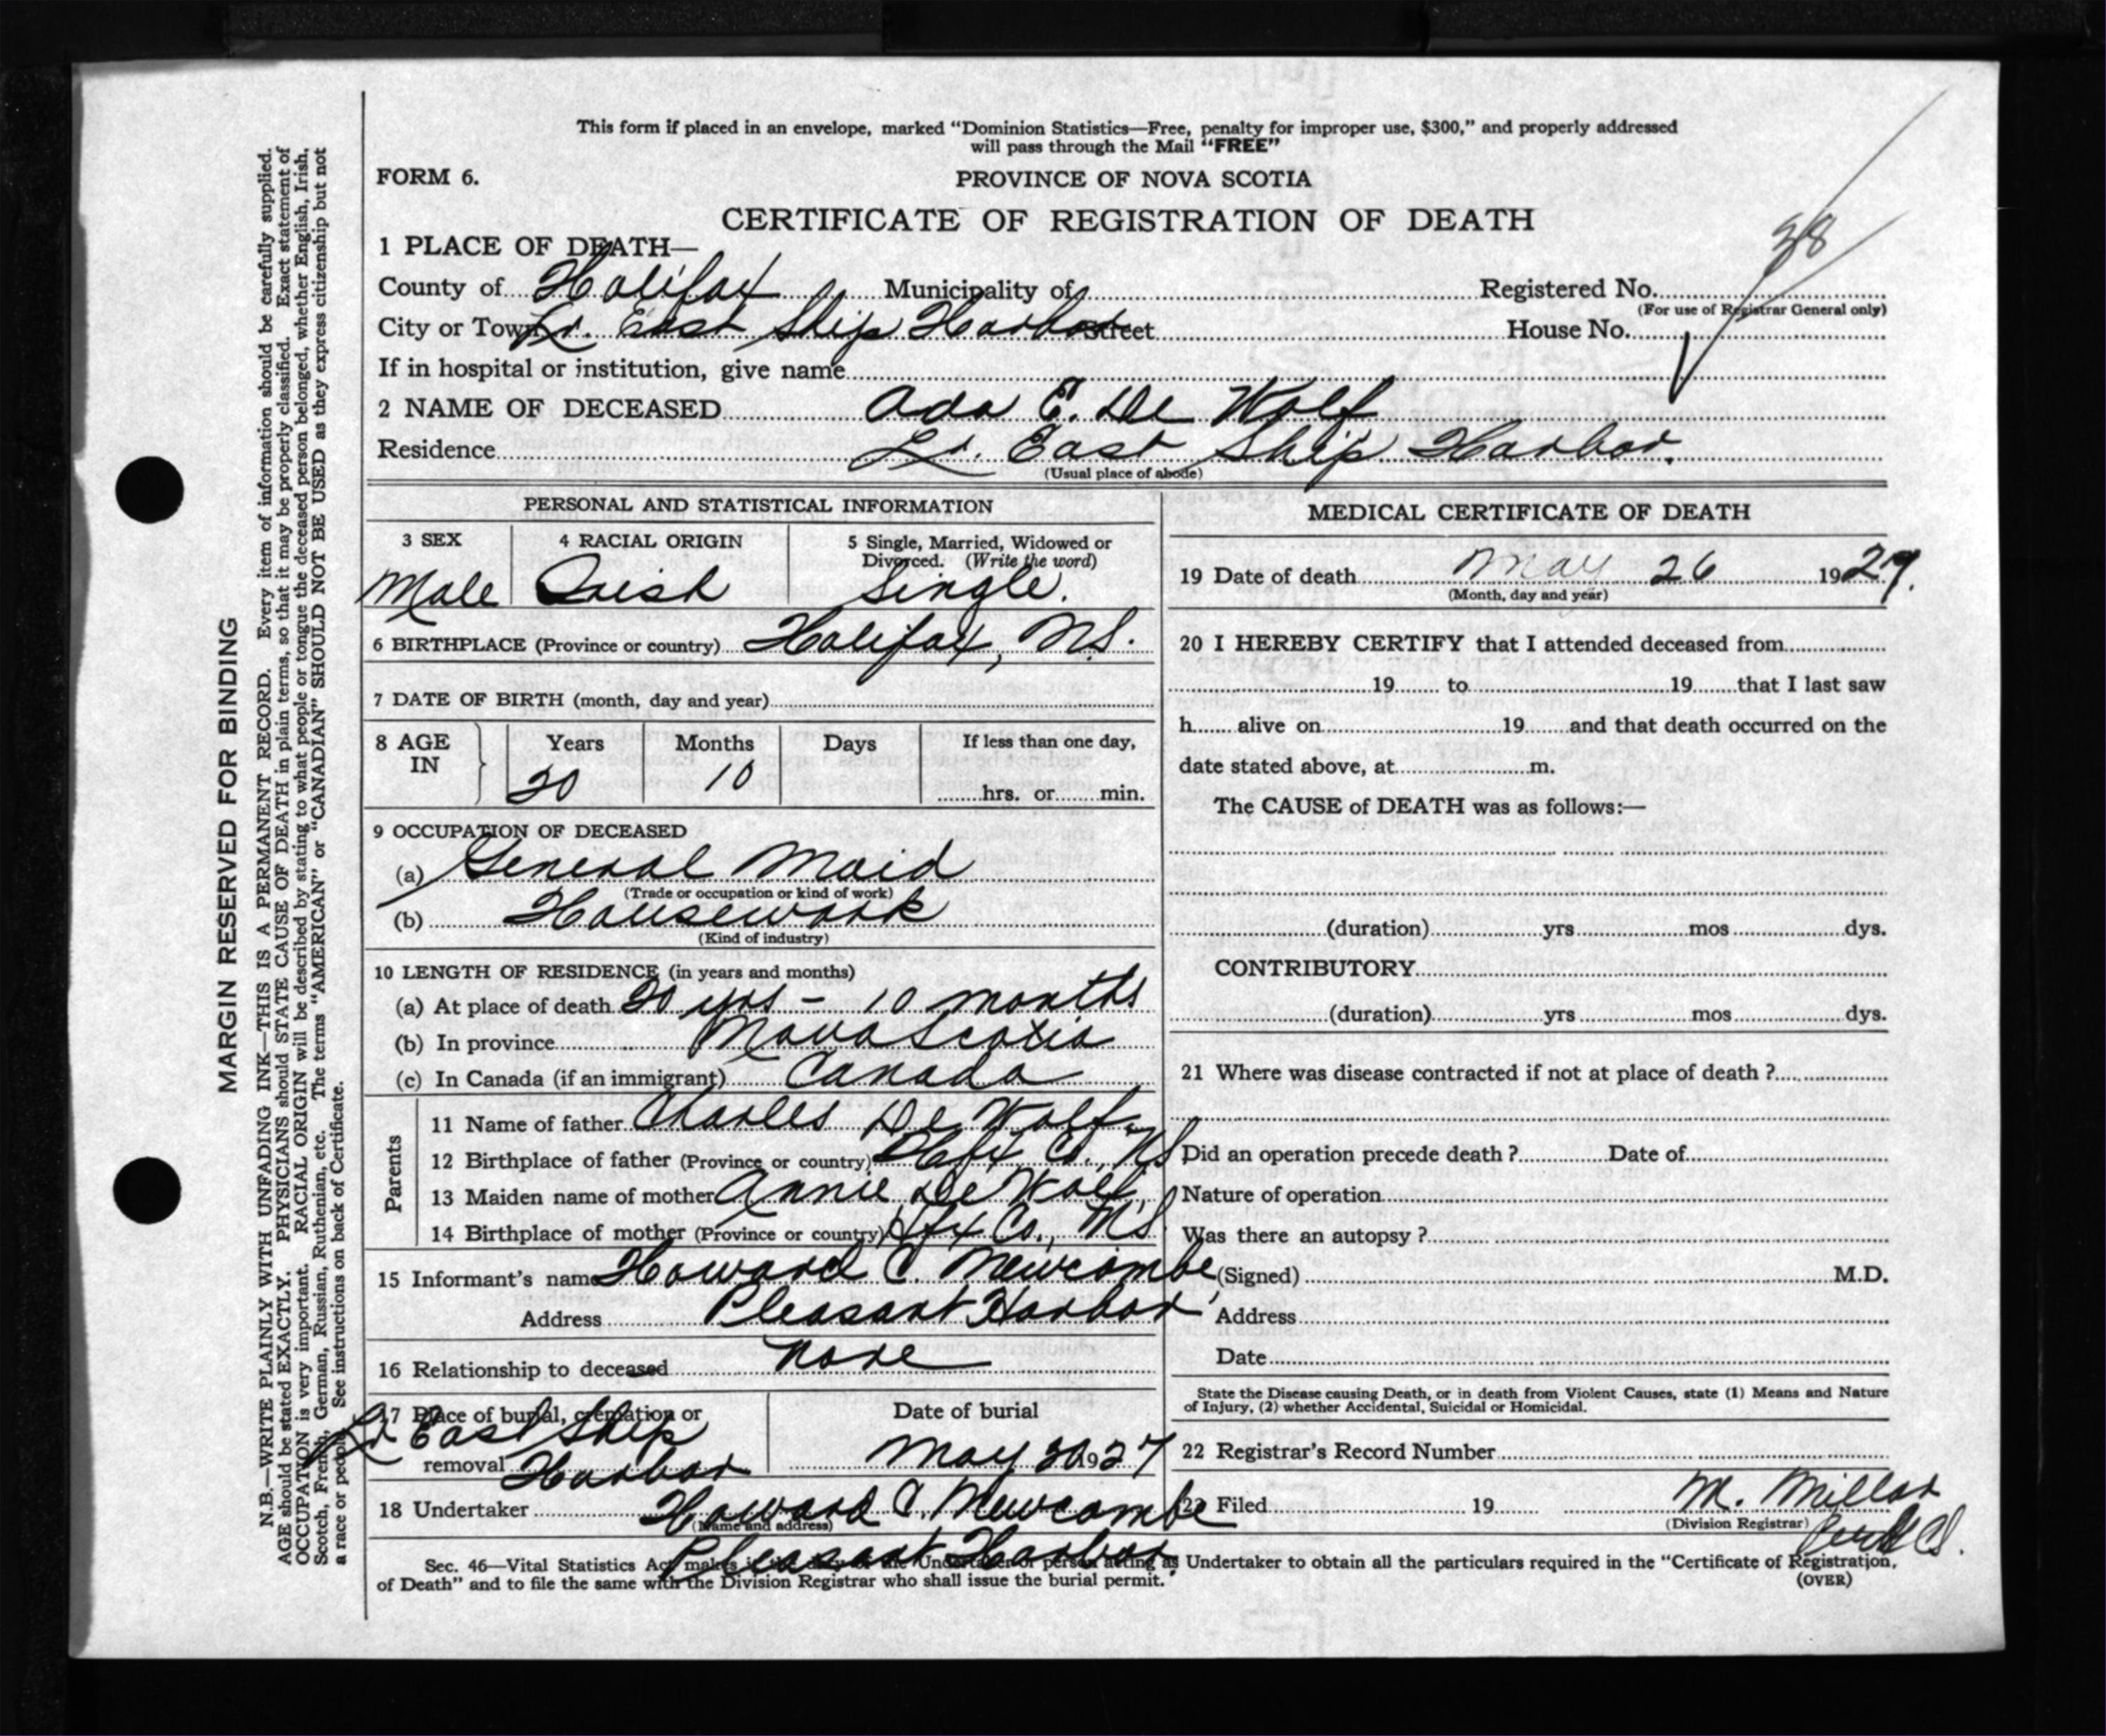 This form if placed in an envelope, marked “Dominion Statistics—Free, penalty for improper use, $300,” and properly addressed
will pass through the Mail “FREE”
FORM 6.
PROVINCE OF NOVA SCOTIA
CERTIFICATE OF REGISTRATION OF DEATH
38
1 PLACE OF DEATH—
County of Halifax Municipality of Registered No.
(For use of Registrar General only)
City or Town Lr. East Ship Harbor Street House No.
If in hospital or institution, give name
2 NAME OF DECEASED Ada E. De Wolf
Residence Lr. East Ship Harbor.
(Usual place of abode)
PERSONAL AND STATISTICAL INFORMATION
3 SEX 4 RACIAL ORIGIN 5 Single, Married, Widowed or
Divorced. (Write the word)
Male Single.
6 BIRTHPLACE (Province or country) Halifax, N.S.
7 DATE OF BIRTH (month, day and year)
8 AGE IN Years Months Days If less than one day,
10 hrs. or min.
9 OCCUPATION OF DECEASED
(a) General Maid
(Trade or occupation or kind of work)
(b) Housework
(Kind of industry)
10 LENGTH OF RESIDENCE (in years and months)
(a) At place of death yrs - 10 months
(b) In province Nova Scotia
(c) In Canada (if an immigrant) Canada
Parents
11 Name of father Charles De Wolf
12 Birthplace of father (Province or country) Hafx Co., NS
13 Maiden name of mother Annie De Wolf,
14 Birthplace of mother (Province or country) Hfx Co., N.S
15 Informant's name Howard C. Newcombe
Address Pleasant Harbor
16 Relationship to deceased None
17 Place of burial, cremation or
removal Lr East Ship
Harbor
Date of burial
May 1927
18 Undertaker Howard C. Newcombe
(Name and address)
Pleasant Harbor
MEDICAL CERTIFICATE OF DEATH
19 Date of death May 26 1927.
(Month, day and year)
20 I HEREBY CERTIFY that I attended deceased from
19 to 19 that I last saw
h alive on 19 and that death occurred on the
date stated above, at m.
The CAUSE of DEATH was as follows:—
(duration) yrs mos dys.
CONTRIBUTORY
(duration) yrs mos dys.
21 Where was disease contracted if not at place of death ?
Did an operation precede death ? Date of
Nature of operation
Was there an autopsy ?
(Signed) M.D.
Address
Date
State the Disease causing Death, or in death from Violent Causes, state (1) Means and Nature
of Injury, (2) whether Accidental, Suicidal or Homicidal.
22 Registrar's Record Number
23 Filed 19 M. Millar
(Division Registrar)
Sec. 46—Vital Statistics Act makes it the duty of the Undertaker or person acting as Undertaker to obtain all the particulars required in the “Certificate of Registration,
of Death” and to file the same with the Division Registrar who shall issue the burial permit.
(OVER)
MARGIN RESERVED FOR BINDING
N.B.—WRITE PLAINLY WITH UNFADING INK—THIS IS A PERMANENT RECORD. Every item of information should be carefully supplied.
AGE should be stated EXACTLY. PHYSICIANS should STATE CAUSE OF DEATH in plain terms, so that it may be properly classified. Exact statement of
OCCUPATION is very important. RACIAL ORIGIN will be described by stating to what people or tongue the deceased person belonged, whether English, Irish,
Scotch, French, German, Russian, Ruthenian, etc. The terms “AMERICAN” or “CANADIAN” SHOULD NOT BE USED as they express citizenship but not
a race or people. See instructions on back of Certificate.